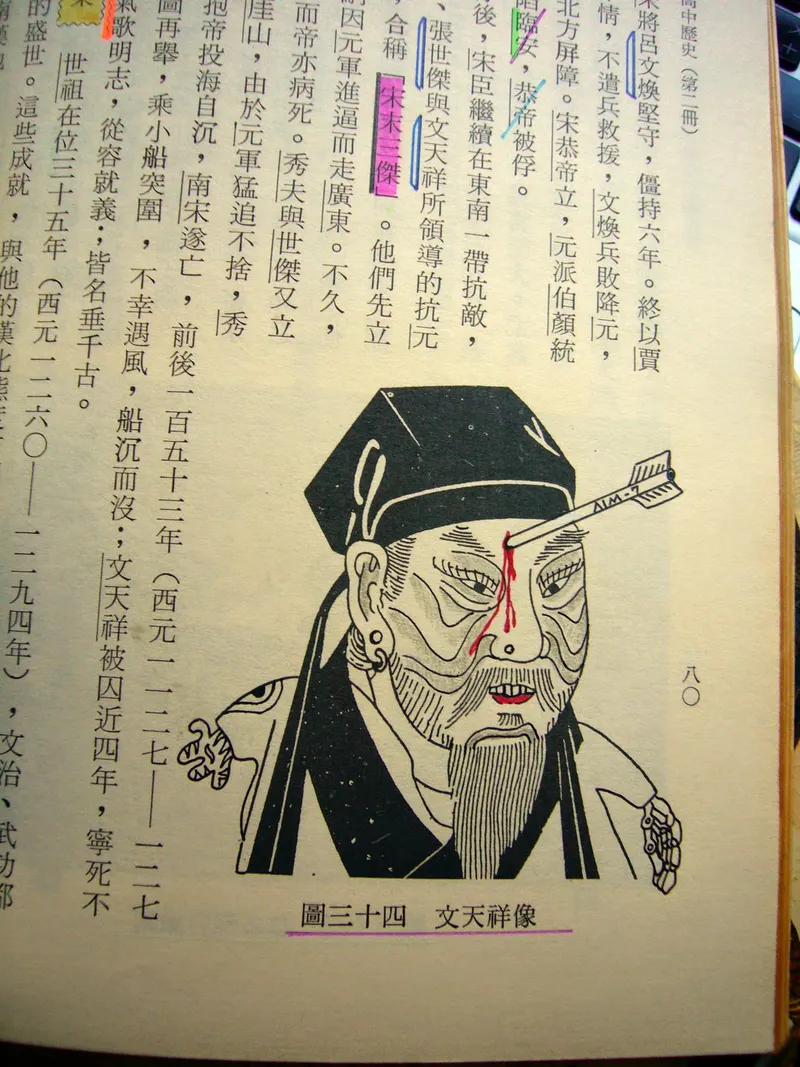 高中歷史（第二冊）
將呂文煥堅守，僵持六年。終以賈
情，不遣兵救援，文煥兵敗降元，
北方屏障。宋恭帝立，元派伯顏統
臨安，恭帝被俘。
後，宋臣繼續在東南一帶抗敵，
、張世傑與文天祥所領導的抗元
，合稱「宋末三傑」。他們先立
因元軍進逼而走廣東。不久，
而帝亦病死。秀夫與世傑又立
崖山，由於元軍猛追不捨，秀
抱帝投海自沉，南宋遂亡，前後一百五十三年（西元一一二七——一二七
圖再舉，乘小船突圍，不幸遇風，船沉而沒；文天祥被囚近四年，寧死不
氣歌明志，從容就義；皆名垂千古。
世祖在位三十五年（西元一二六〇——一二九四年），文治、武功都
的盛世。這些成就，與他的漢化
AIM-7
圖三十四　文天祥像
八〇